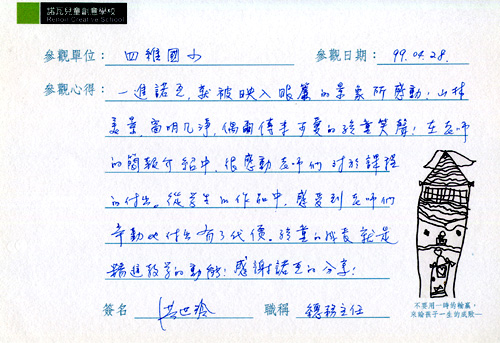 諾瓦兒童創意學校
Renoir Creative School
參觀單位： 四維國小 參觀日期： 99.04.28.
參觀心得： 一進諾瓦，就被映入眼簾的景象所感動！山林
美景，窗明几淨，偶爾傳來可愛的孩童笑聲！在老師
的簡報介紹中，很感動老師們對於課程
的付出。從學生的作品中，感受到老師們
辛勤的付出有了代價。孩童的成長就是
精進教學的動能！感謝諾瓦的分享！
簽名 洪世玲 職稱 總務主任
不要用一時的輸贏，
來論孩子一生的成敗—